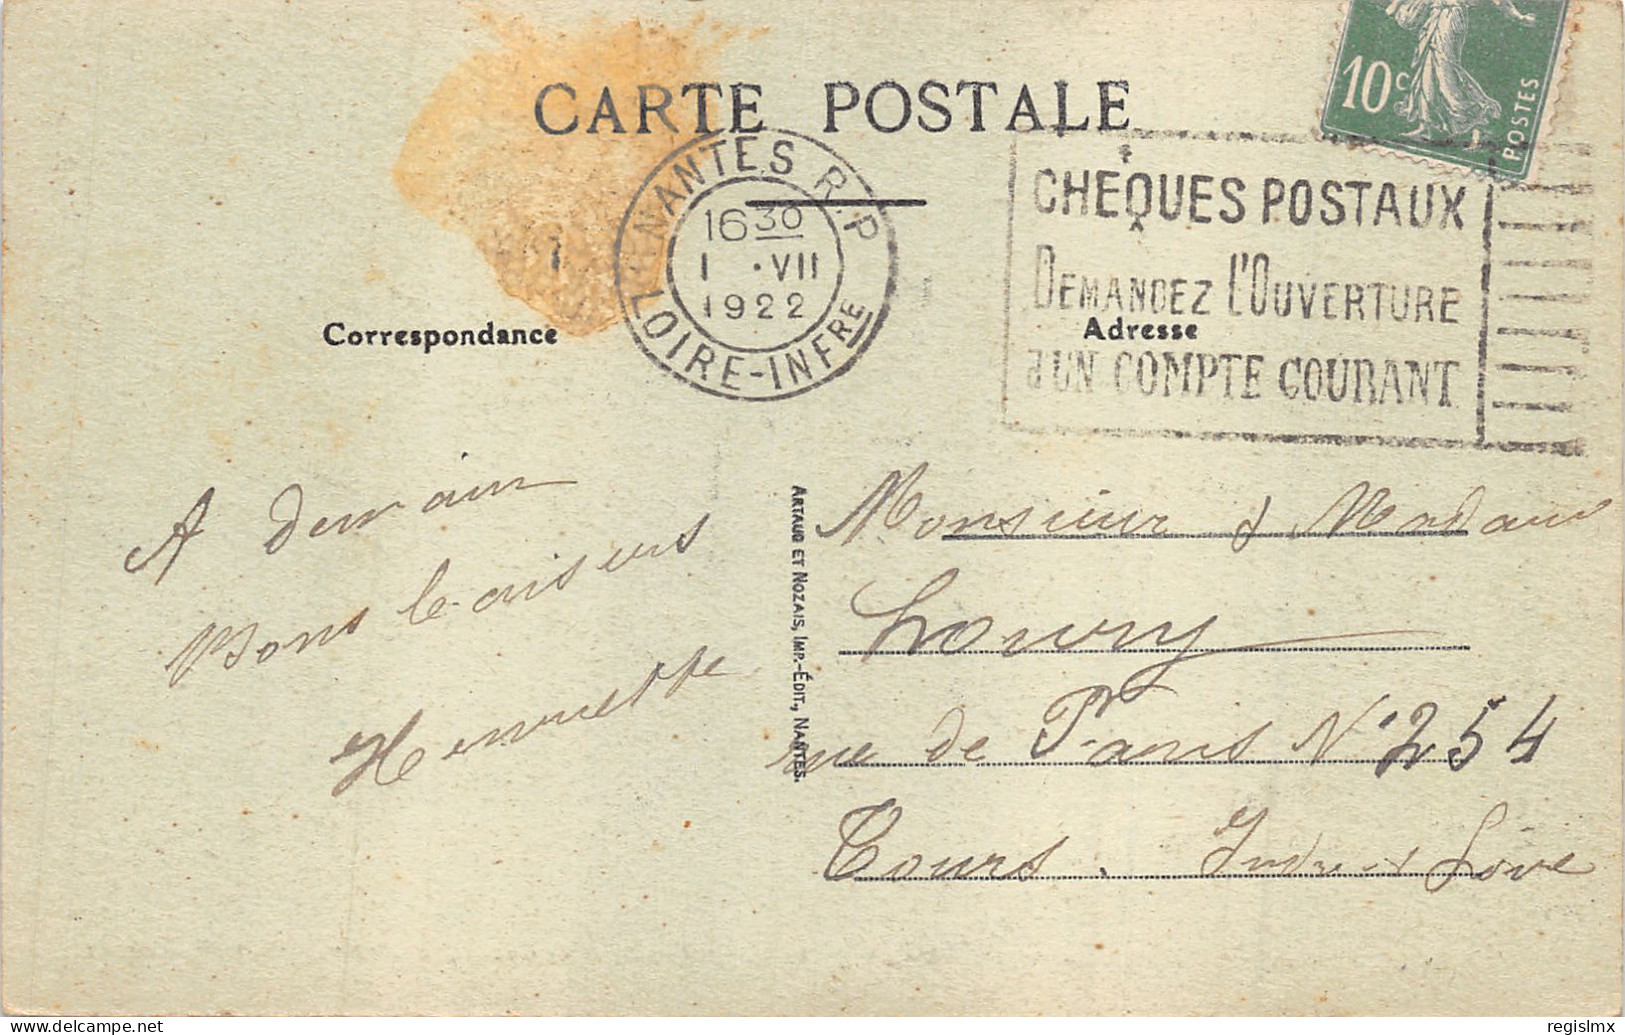 CARTE POSTALE
10c
POSTES
NANTES R.P
16 30
1 . VII
1922
LOIRE-INFRE
CHEQUES POSTAUX
DEMANDEZ L'OUVERTURE
d'UN COMPTE COURANT
Correspondance
Adresse
A demain
Bons baisers
Henriette
ARTAUD ET NOZAIS, IMP.-ÉDIT., NANTES.
Monsieur & Madame
rue de Paris N° 254
Tours. Indre et Loire
delcampe.net
regislmx